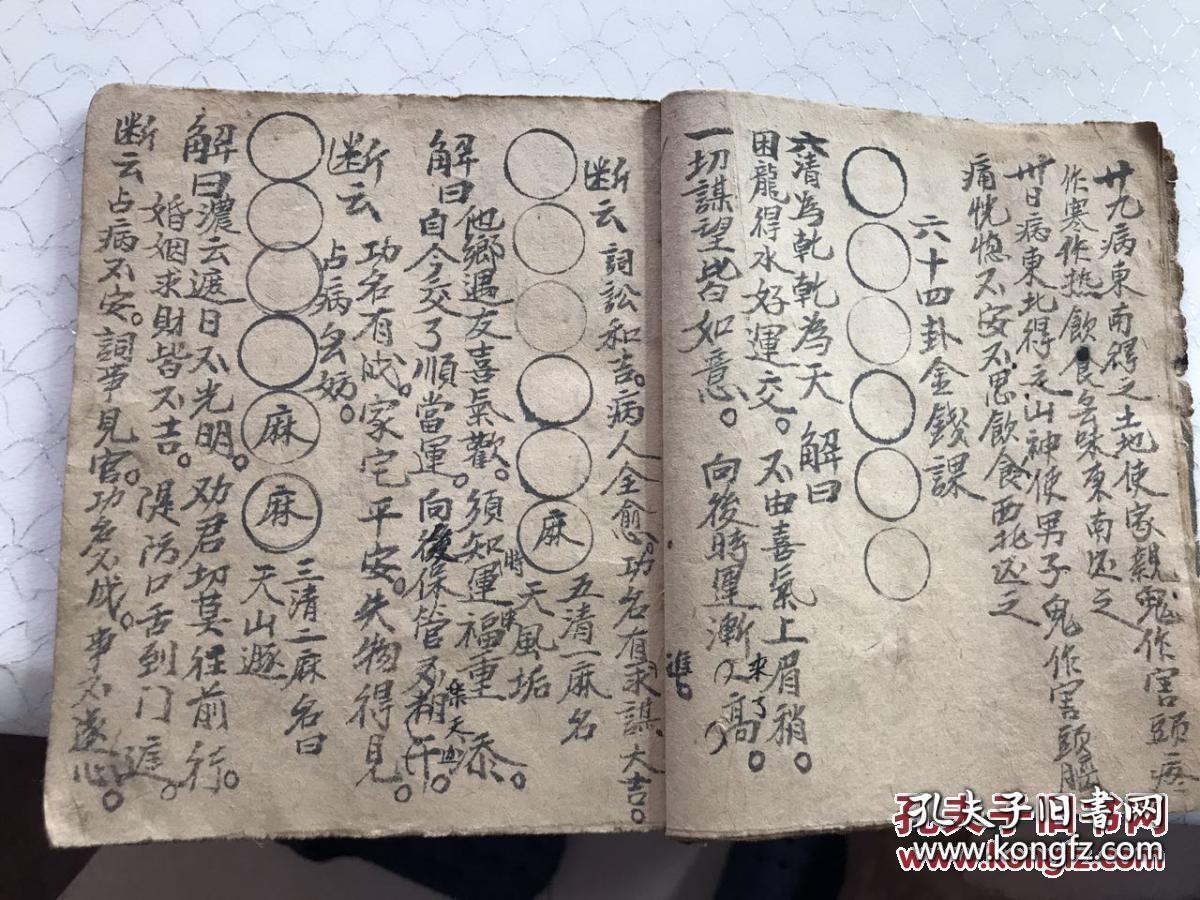 廿九病東南碍之土地使家親鬼作害頭疼
作寒作热飲食無味東南送之
卅日病東北得之山神使男子鬼作害頭腦
痛恍惚不安不思飲食西北送之
六十四卦金錢課
六清為乾乾為天 解曰
困龍得水好運交。不由喜氣上眉稍。
一切謀望皆如意。向後時運漸漸高。
來了
進
断云 詞訟和吉。病人全愈。功名有求謀大吉。
麻
五清一麻名
天風垢
解曰
他鄉遇友喜氣歡。須知運福重添。
時
自今交了順當運。向後保管不相干。
断云
功名有成。家宅平安。失物得見。
占病無妨。
麻
麻
三清二麻名曰
天山遯
解曰濃云渡日不光明。劝君切莫往前行。
婚姻求財皆不吉。隄防口舌到门庭。
断云占病不安。詞事見官。功名不成。事不遂心。
孔夫子旧书网
www.kongfz.com